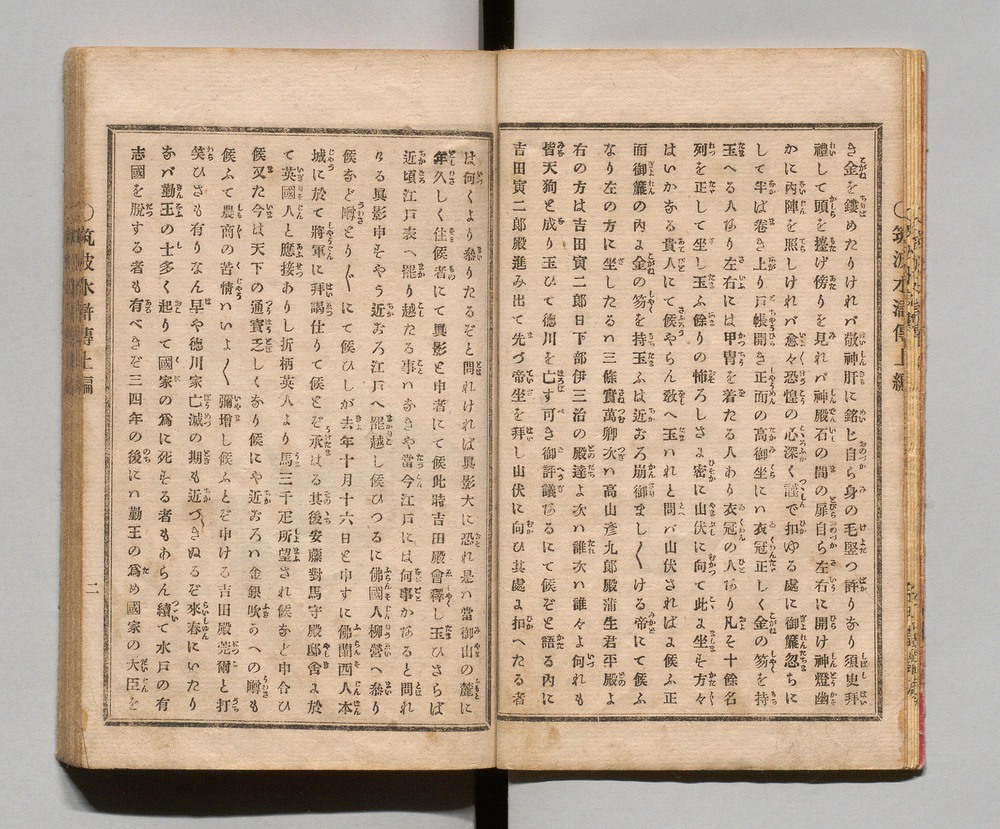 き金を鏤めたりければ敬神肝に銘じ自ら身の毛竪つ許りなり須更拜
禮して頭を擡げ傍りを見れバ神殿石の間の扉自ら左右に開け神燈幽
かに內陣を照しければ愈々恐惶の心深く謹で扣ゆる處に御簾忽ちに
して半ば卷き上り戸帳開き正面の高御坐にハ衣冠正しく金の笏を持
玉へる人あり左右には甲冑を着たる人あり衣冠の人あり凡そ十餘名
列を正して坐し玉ふ餘りの怖ろしさに密に山伏に向て此に坐す方々
はいかなる貴人にて候やらん敎へ玉ハれと問バ山伏さればよ候ふ正
面御簾の內に金の笏を持玉ふは近ごろ崩御ましましける帝にて候ふ
なり左の方に坐したるハ三條實萬卿次ハ高山彥九郎殿蒲生君平殿よ
右の方は吉田寅二郎日下部伊三治の殿達よ次ハ誰次ハ誰々よ何れも
皆天狗と成り玉ひて德川を亡す可き御評議なるにて候ぞと語る內に
吉田寅二郎殿進み出て先づ帝坐を拜し山伏に向ひ其處に扣へたる者
は何くより參りたるぞと問れければ眞影大に恐れ是ハ當御山の麓に
年久しく住候者にて眞影と申者にて候此時吉田殿會釋し玉ひさらば
近頃江戸表へ罷り越たる事ハなきや當今江戸には何事かあると問れ
ける眞影申そやう近ごろ江戸へ罷越し候ひつるに佛國人柳營へ參り
候など噂とりとりにて候ひしが去年十月十六日と申すに佛蘭西人本
城に於て將軍に拜謁仕りて候とぞ承はる其後安藤對馬守殿邸舍に於
て英國人と應接ありし折柄英人より馬三千疋所望され候など申合ひ
候又た今は天下の通寶乏しくなり候にや近ごろハ金銀吹らへの噂も
候ふて農商の苦情ハいよいよ彌增し候ふとぞ申ける吉田殿莞爾と打
笑ひさも有りなん早や德川家亡滅の期も近づきぬるぞ來春にいたり
なバ勤王の士多く起りて國家の爲に死する者もあらん續て水戸の有
志國を脫する者も有べきぞ三四年の後にハ勤王の爲め國家の大臣を
〇筑波水滸傳上編
二